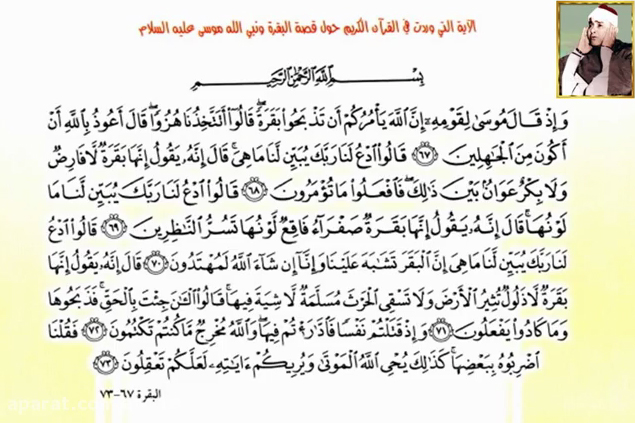 الآية التي وردت في القرآن الكريم حول قصة البقرة ونبي الله موسى عليه السلام
بِسْمِ اللَّهِ الرَّحْمَٰنِ الرَّحِيمِ
وَإِذْ قَالَ مُوسَىٰ لِقَوْمِهِ إِنَّ اللَّهَ يَأْمُرُكُمْ أَن تَذْبَحُوا بَقَرَةً ۖ قَالُوا أَتَتَّخِذُنَا هُزُوًا ۖ قَالَ أَعُوذُ بِاللَّهِ أَنْ
أَكُونَ مِنَ الْجَاهِلِينَ ﴿٦٧﴾ قَالُوا ادْعُ لَنَا رَبَّكَ يُبَيِّن لَّنَا مَا هِيَ ۚ قَالَ إِنَّهُ يَقُولُ إِنَّهَا بَقَرَةٌ لَّا فَارِضٌ
وَلَا بِكْرٌ عَوَانٌ بَيْنَ ذَٰلِكَ ۖ فَافْعَلُوا مَا تُؤْمَرُونَ ﴿٦٨﴾ قَالُوا ادْعُ لَنَا رَبَّكَ يُبَيِّن لَّنَا مَا
لَوْنُهَا ۚ قَالَ إِنَّهُ يَقُولُ إِنَّهَا بَقَرَةٌ صَفْرَاءُ فَاقِعٌ لَّوْنُهَا تَسُرُّ النَّاظِرِينَ ﴿٦٩﴾ قَالُوا ادْعُ
لَنَا رَبَّكَ يُبَيِّن لَّنَا مَا هِيَ إِنَّ الْبَقَرَ تَشَابَهَ عَلَيْنَا وَإِنَّا إِن شَاءَ اللَّهُ لَمُهْتَدُونَ ﴿٧٠﴾ قَالَ إِنَّهُ يَقُولُ إِنَّهَا
بَقَرَةٌ لَّا ذَلُولٌ تُثِيرُ الْأَرْضَ وَلَا تَسْقِي الْحَرْثَ مُسَلَّمَةٌ لَّا شِيَةَ فِيهَا ۚ قَالُوا الْآنَ جِئْتَ بِالْحَقِّ ۚ فَذَبَحُوهَا
وَمَا كَادُوا يَفْعَلُونَ ﴿٧١﴾ وَإِذْ قَتَلْتُمْ نَفْسًا فَادَّارَأْتُمْ فِيهَا ۖ وَاللَّهُ مُخْرِجٌ مَّا كُنتُمْ تَكْتُمُونَ ﴿٧٢﴾ فَقُلْنَا
اضْرِبُوهُ بِبَعْضِهَا ۚ كَذَٰلِكَ يُحْيِي اللَّهُ الْمَوْتَىٰ وَيُرِيكُمْ آيَاتِهِ لَعَلَّكُمْ تَعْقِلُونَ ﴿٧٣﴾
البقرة ٦٧-٧٣